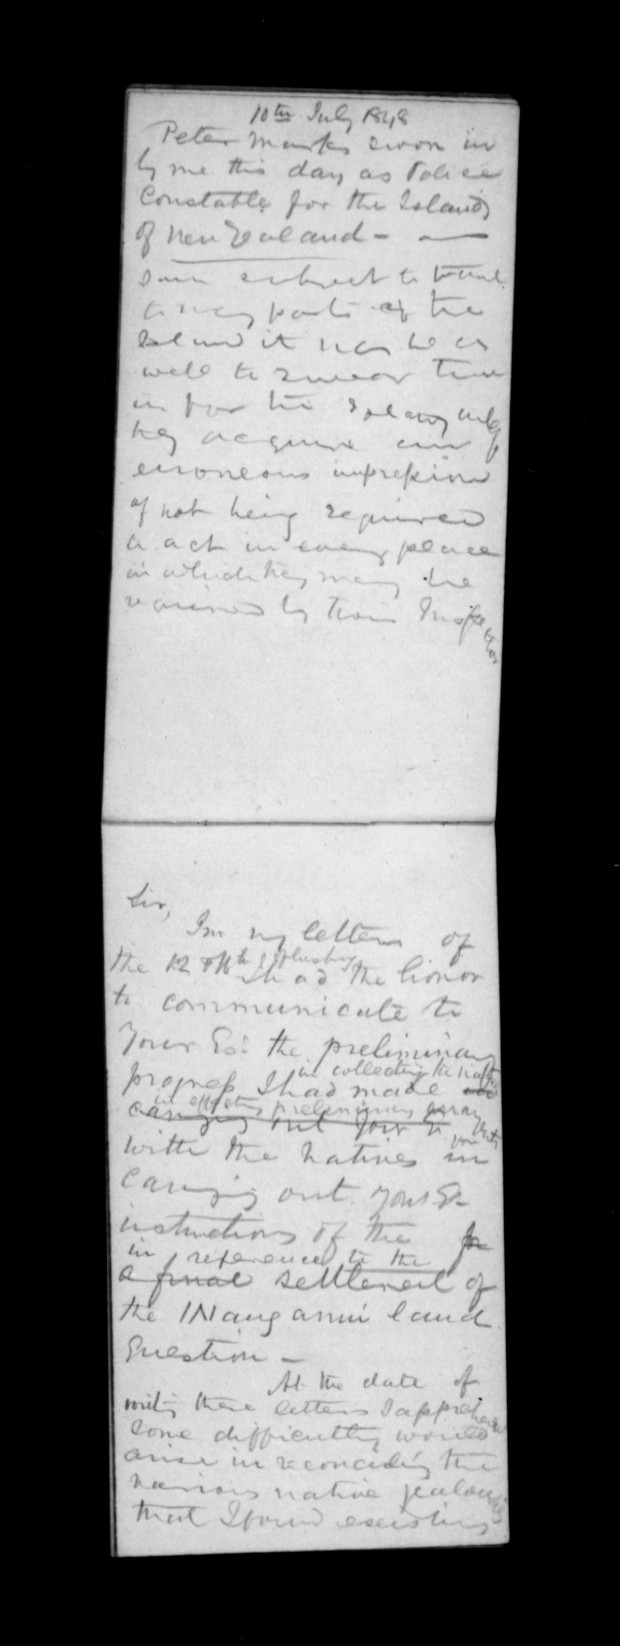 10th July 1848
Peter Marks sworn in
by me this day as Police
Constable for the Islands
of New Zealand -
subject to
to any parts of the
Island it may be as
well to swear them
in for the
they acquire an
erroneous impression
of not being required
to act in every place
in which they may be
required by their Inspector
Sir,
In my letters of
the 12 I had the honor
to communicate to
Your Ex: the preliminary
in collecting the
progress I had made
in effecting preliminary
carrying out your
with the Natives in
carrying out your Ex
instructions of the
in reference to the
a final settlement of
the Wanganui land
Question -
At the date of
writing these letters I apprehended
some difficulty would
arise in reconciling the
various native jealousies
that I found existing